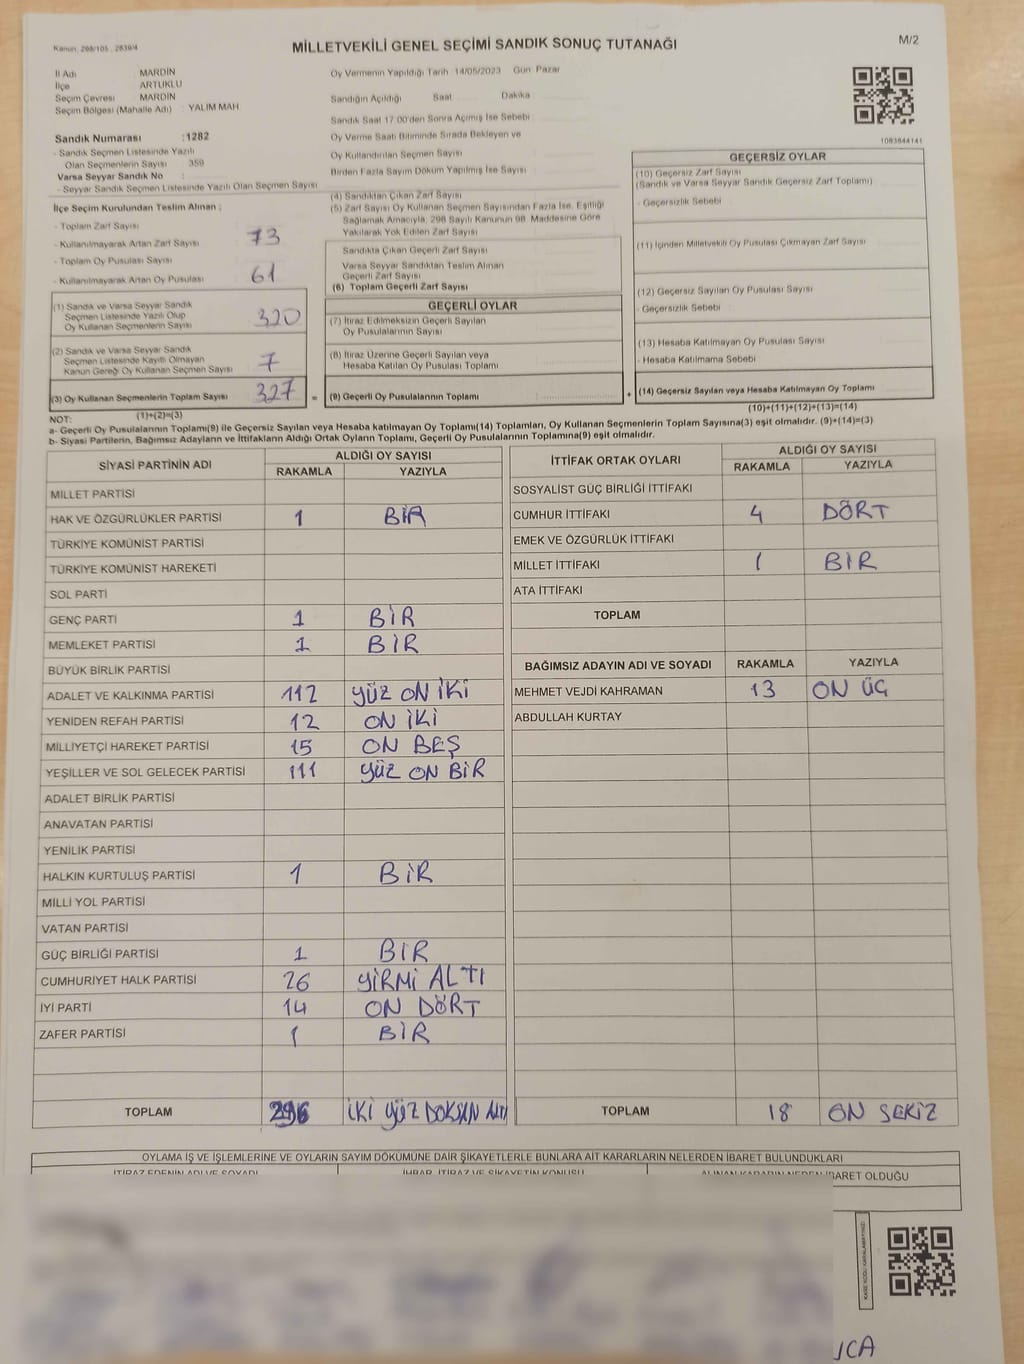 Kanun: 298/105 , 2839/4
MİLLETVEKİLİ GENEL SEÇİMİ SANDIK SONUÇ TUTANAĞI
M/2
İl Adı : MARDİN
İlçe : ARTUKLU
Seçim Çevresi : MARDİN
Seçim Bölgesi (Mahalle Adı) : YALIM MAH
Sandık Numarası :1282
- Sandık Seçmen Listesinde Yazılı
Olan Seçmenlerin Sayısı : 359
Varsa Seyyar Sandık No :
- Seyyar Sandık Seçmen Listesinde Yazılı Olan Seçmen Sayısı
İlçe Seçim Kurulundan Teslim Alınan ;
- Toplam Zarf Sayısı
- Kullanılmayarak Artan Zarf Sayısı 73
- Toplam Oy Pusulası Sayısı
- Kullanılmayarak Artan Oy Pusulası 61
(1) Sandık ve Varsa Seyyar Sandık
Seçmen Listesinde Yazılı Olup
Oy Kullanan Seçmenlerin Sayısı 320
(2) Sandık ve Varsa Seyyar Sandık
Seçmen Listesinde Kayıtlı Olmayan
Kanun Gereği Oy Kullanan Seçmen Sayısı 7
(3) Oy Kullanan Seçmenlerin Toplam Sayısı 327 =
(1)+(2)=(3)
Oy Vermenin Yapıldığı Tarih :14/05/2023 Gün: Pazar
Sandığın Açıldığı Saat Dakika
Sandık Saat 17:00'den Sonra Açımış İse Sebebi
Oy Verme Saati Bitiminde Sırada Bekleyen ve
Oy Kullandırılan Seçmen Sayısı
Birden Fazla Sayım Döküm Yapılmış İse Sayısı
(4) Sandıktan Çıkan Zarf Sayısı
(5) Zarf Sayısı Oy Kullanan Seçmen Sayısından Fazla İse, Eşitliği
Sağlamak Amacıyla, 298 Sayılı Kanunun 98. Maddesine Göre
Yakılarak Yok Edilen Zarf Sayısı
Sandıkta Çıkan Geçerli Zarf Sayısı
Varsa Seyyar Sandıktan Teslim Alınan
Geçerli Zarf Sayısı
(6) Toplam Geçerli Zarf Sayısı
GEÇERLİ OYLAR
(7) İtiraz Edilmeksizin Geçerli Sayılan
Oy Pusulalarının Sayısı
(8) İtiraz Üzerine Geçerli Sayılan veya
Hesaba Katılan Oy Pusulası Toplamı
(9) Geçerli Oy Pusulalarının Toplamı +
1083844141
GEÇERSİZ OYLAR
(10) Geçersiz Zarf Sayısı
(Sandık ve Varsa Seyyar Sandık Geçersiz Zarf Toplamı)
- Geçersizlik Sebebi
(11) İçinden Milletvekili Oy Pusulası Çıkmayan Zarf Sayısı
(12) Geçersiz Sayılan Oy Pusulası Sayısı
- Geçersizlik Sebebi
(13) Hesaba Katılmayan Oy Pusulası Sayısı
- Hesaba Katılmama Sebebi
(14) Geçersiz Sayılan veya Hesaba Katılmayan Oy Toplamı
(10)+(11)+(12)+(13)=(14)
NOT:
a- Geçerli Oy Pusulalarının Toplamı(9) ile Geçersiz Sayılan veya Hesaba katılmayan Oy Toplamı(14) Toplamları, Oy Kullanan Seçmenlerin Toplam Sayısına(3) eşit olmalıdır. (9)+(14)=(3)
b- Siyasi Partilerin, Bağımsız Adayların ve İttifakların Aldığı Ortak Oyların Toplamı, Geçerli Oy Pusulalarının Toplamına(9) eşit olmalıdır.
SİYASİ PARTİNİN ADI ALDIĞI OY SAYISI
RAKAMLA YAZIYLA
MİLLET PARTİSİ
HAK VE ÖZGÜRLÜKLER PARTİSİ 1 BİR
TÜRKİYE KOMÜNİST PARTİSİ
TÜRKİYE KOMÜNİST HAREKETİ
SOL PARTİ
GENÇ PARTİ 1 BİR
MEMLEKET PARTİSİ 1 BİR
BÜYÜK BİRLİK PARTİSİ
ADALET VE KALKINMA PARTİSİ 112 YÜZ ON İKİ
YENİDEN REFAH PARTİSİ 12 ON İKİ
MİLLİYETÇİ HAREKET PARTİSİ 15 ON BEŞ
YEŞİLLER VE SOL GELECEK PARTİSİ 111 YÜZ ON BİR
ADALET BİRLİK PARTİSİ
ANAVATAN PARTİSİ
YENİLİK PARTİSİ
HALKIN KURTULUŞ PARTİSİ 1 BİR
MİLLİ YOL PARTİSİ
VATAN PARTİSİ
GÜÇ BİRLİĞİ PARTİSİ 1 BİR
CUMHURİYET HALK PARTİSİ 26 YİRMİ ALTI
İYİ PARTİ 14 ON DÖRT
ZAFER PARTİSİ 1 BİR
TOPLAM 296 İKİ YÜZ DOKSAN ALTI
İTTİFAK ORTAK OYLARI ALDIĞI OY SAYISI
RAKAMLA YAZIYLA
SOSYALİST GÜÇ BİRLİĞİ İTTİFAKI
CUMHUR İTTİFAKI 4 DÖRT
EMEK VE ÖZGÜRLÜK İTTİFAKI
MİLLET İTTİFAKI 1 BİR
ATA İTTİFAKI
TOPLAM
BAĞIMSIZ ADAYIN ADI VE SOYADI RAKAMLA YAZIYLA
MEHMET VEJDİ KAHRAMAN 13 ON ÜÇ
ABDULLAH KURTAY
TOPLAM 18 ON SEKİZ
OYLAMA İŞ VE İŞLEMLERİNE VE OYLARIN SAYIM DÖKÜMÜNE DAİR ŞİKAYETLERLE BUNLARA AİT KARARLARIN NELERDEN İBARET BULUNDUKLARI
İTİRAZ EDENİN ADI VE SOYADI İHBAR, İTİRAZ VE ŞİKAYETİN KONUSU ALINAN KARARIN NEDEN İBARET OLDUĞU